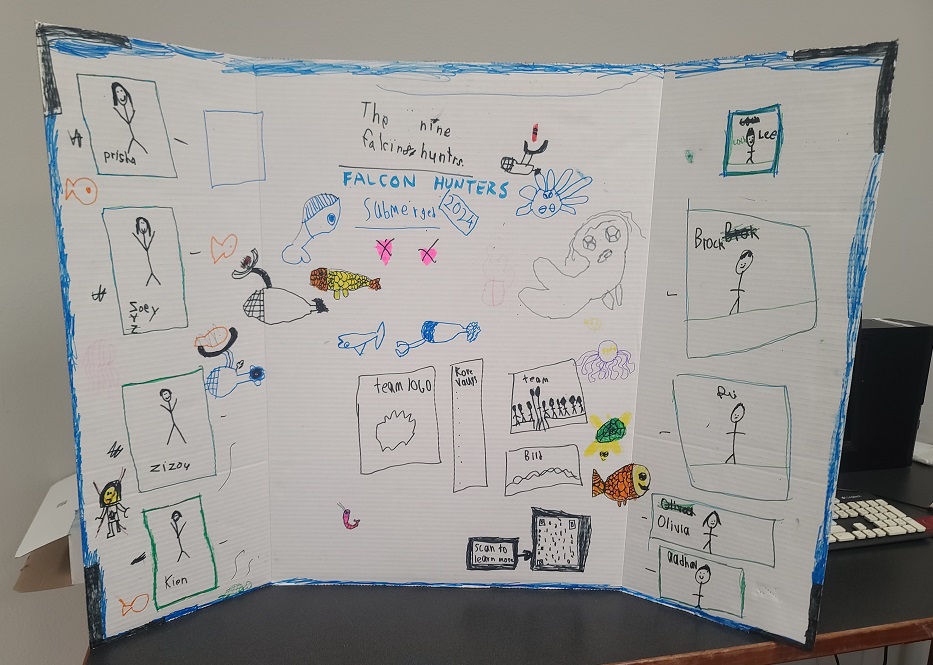 prisha
Soey
YZ
zizou
Kien
The nine
falcins huntrs.
FALCON HUNTERS
Submerged 2024
team LOGO
Kore
Valus
team
Bild
scan to
learn more
LEE
Brock
Ri
Olivia
aadhav